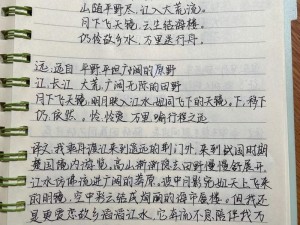 山随平野尽,江入大荒流。
月下飞天镜,云生结海楼。
仍怜故乡水,万里送行舟。
远,远自 平野平坦广阔的原野
江,长江 大荒广阔无际的田野
月下飞天镜,明月映入江水,如同飞下的天镜,下,移下
仍,依然, 怜,怜爱 万里喻行程之远
译文我乘舟渡江来到遥远的荆门外,来到战国时期
楚国境内游览,高山渐渐隐去田野慢慢舒展开,
江水仿佛流进广阔的莽原,波中月影宛如天上飞来
的明镜,空中彩云结成绮丽的海市蜃楼。但我还
是更爱恋故乡滔滔江水,它奔流不息陪伴我万